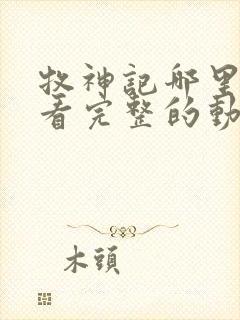 牧神記哪里
看完整的動
木頭